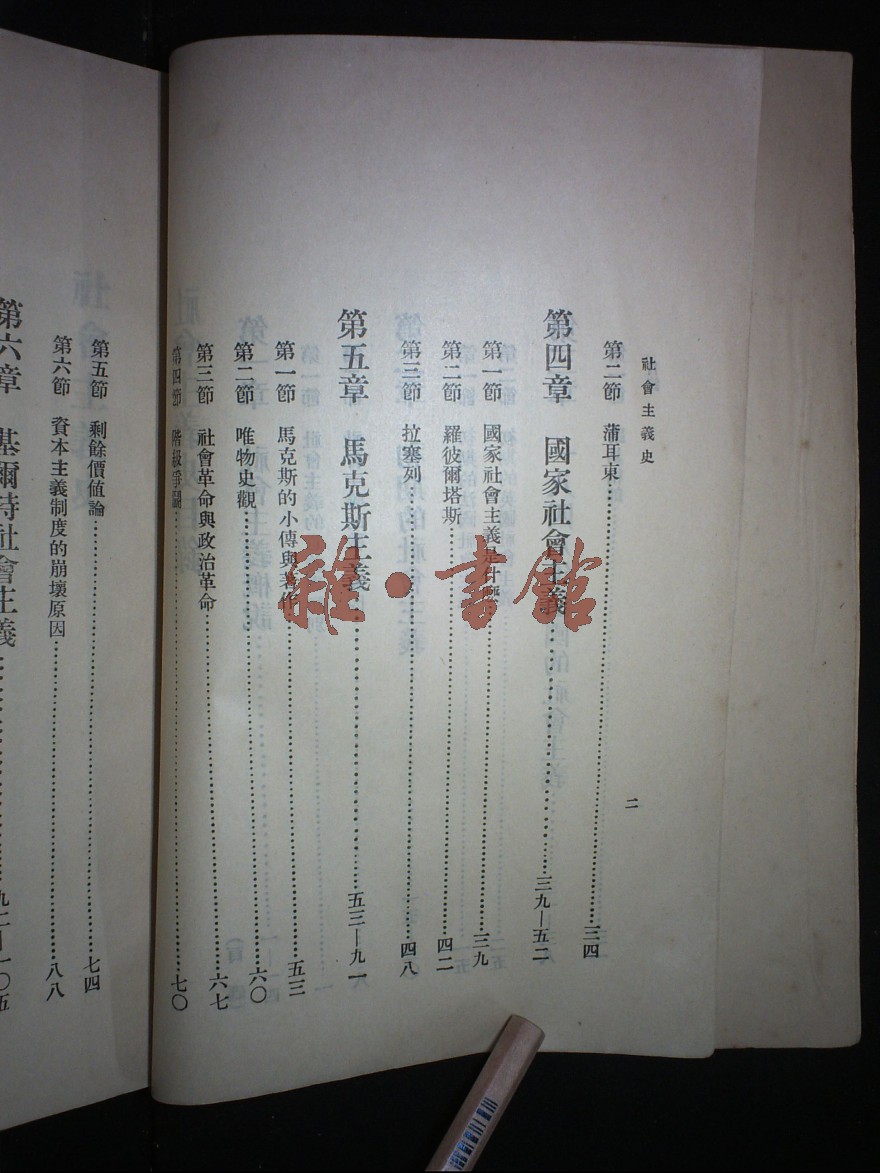 社會主義史
二
第二節　蒲耳東……三四
第四章　國家社會主義……三九—五二
第一節　國家社會主義是什麼……三九
第二節　羅彼爾塔斯……四二
第三節　拉塞列……四八
第五章　馬克斯主義……五三—九一
第一節　馬克斯的小傳與著作……五三
第二節　唯物史觀……六〇
第三節　社會革命與政治革命……六七
第四節　階級爭鬪……七〇
第五節　剩餘價值論……七四
第六節　資本主義制度的崩壞原因……八八
第六章　基爾特社會主義……九二—一〇五
雜·書館